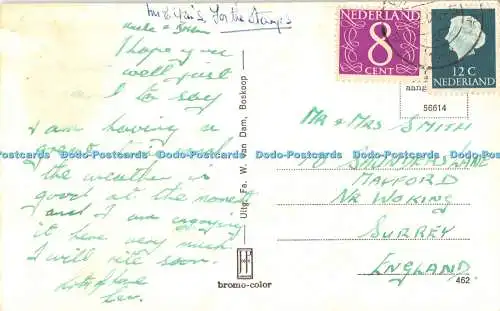 For the Stamps
I hope you are
well just
to say
I am having a
grand time and
the weather is
good at the moment
and I am enjoying
it here very much
I will rite soon.
Lots of love
NEDERLAND
8
CENT
12 C
NEDERLAND
aang
56614
MR & MRS SMITH
10 SAUNDERS LANE
MAYFORD
NR WOKING
SURREY
ENGLAND.
Uitg. Fa. W. van Dam, Boskoop
bromo-color
462
Dodo-Postcards Dodo-Postcards Dodo-Postcards Dodo-Postcards Dodo-Postcards Dodo-Postcards